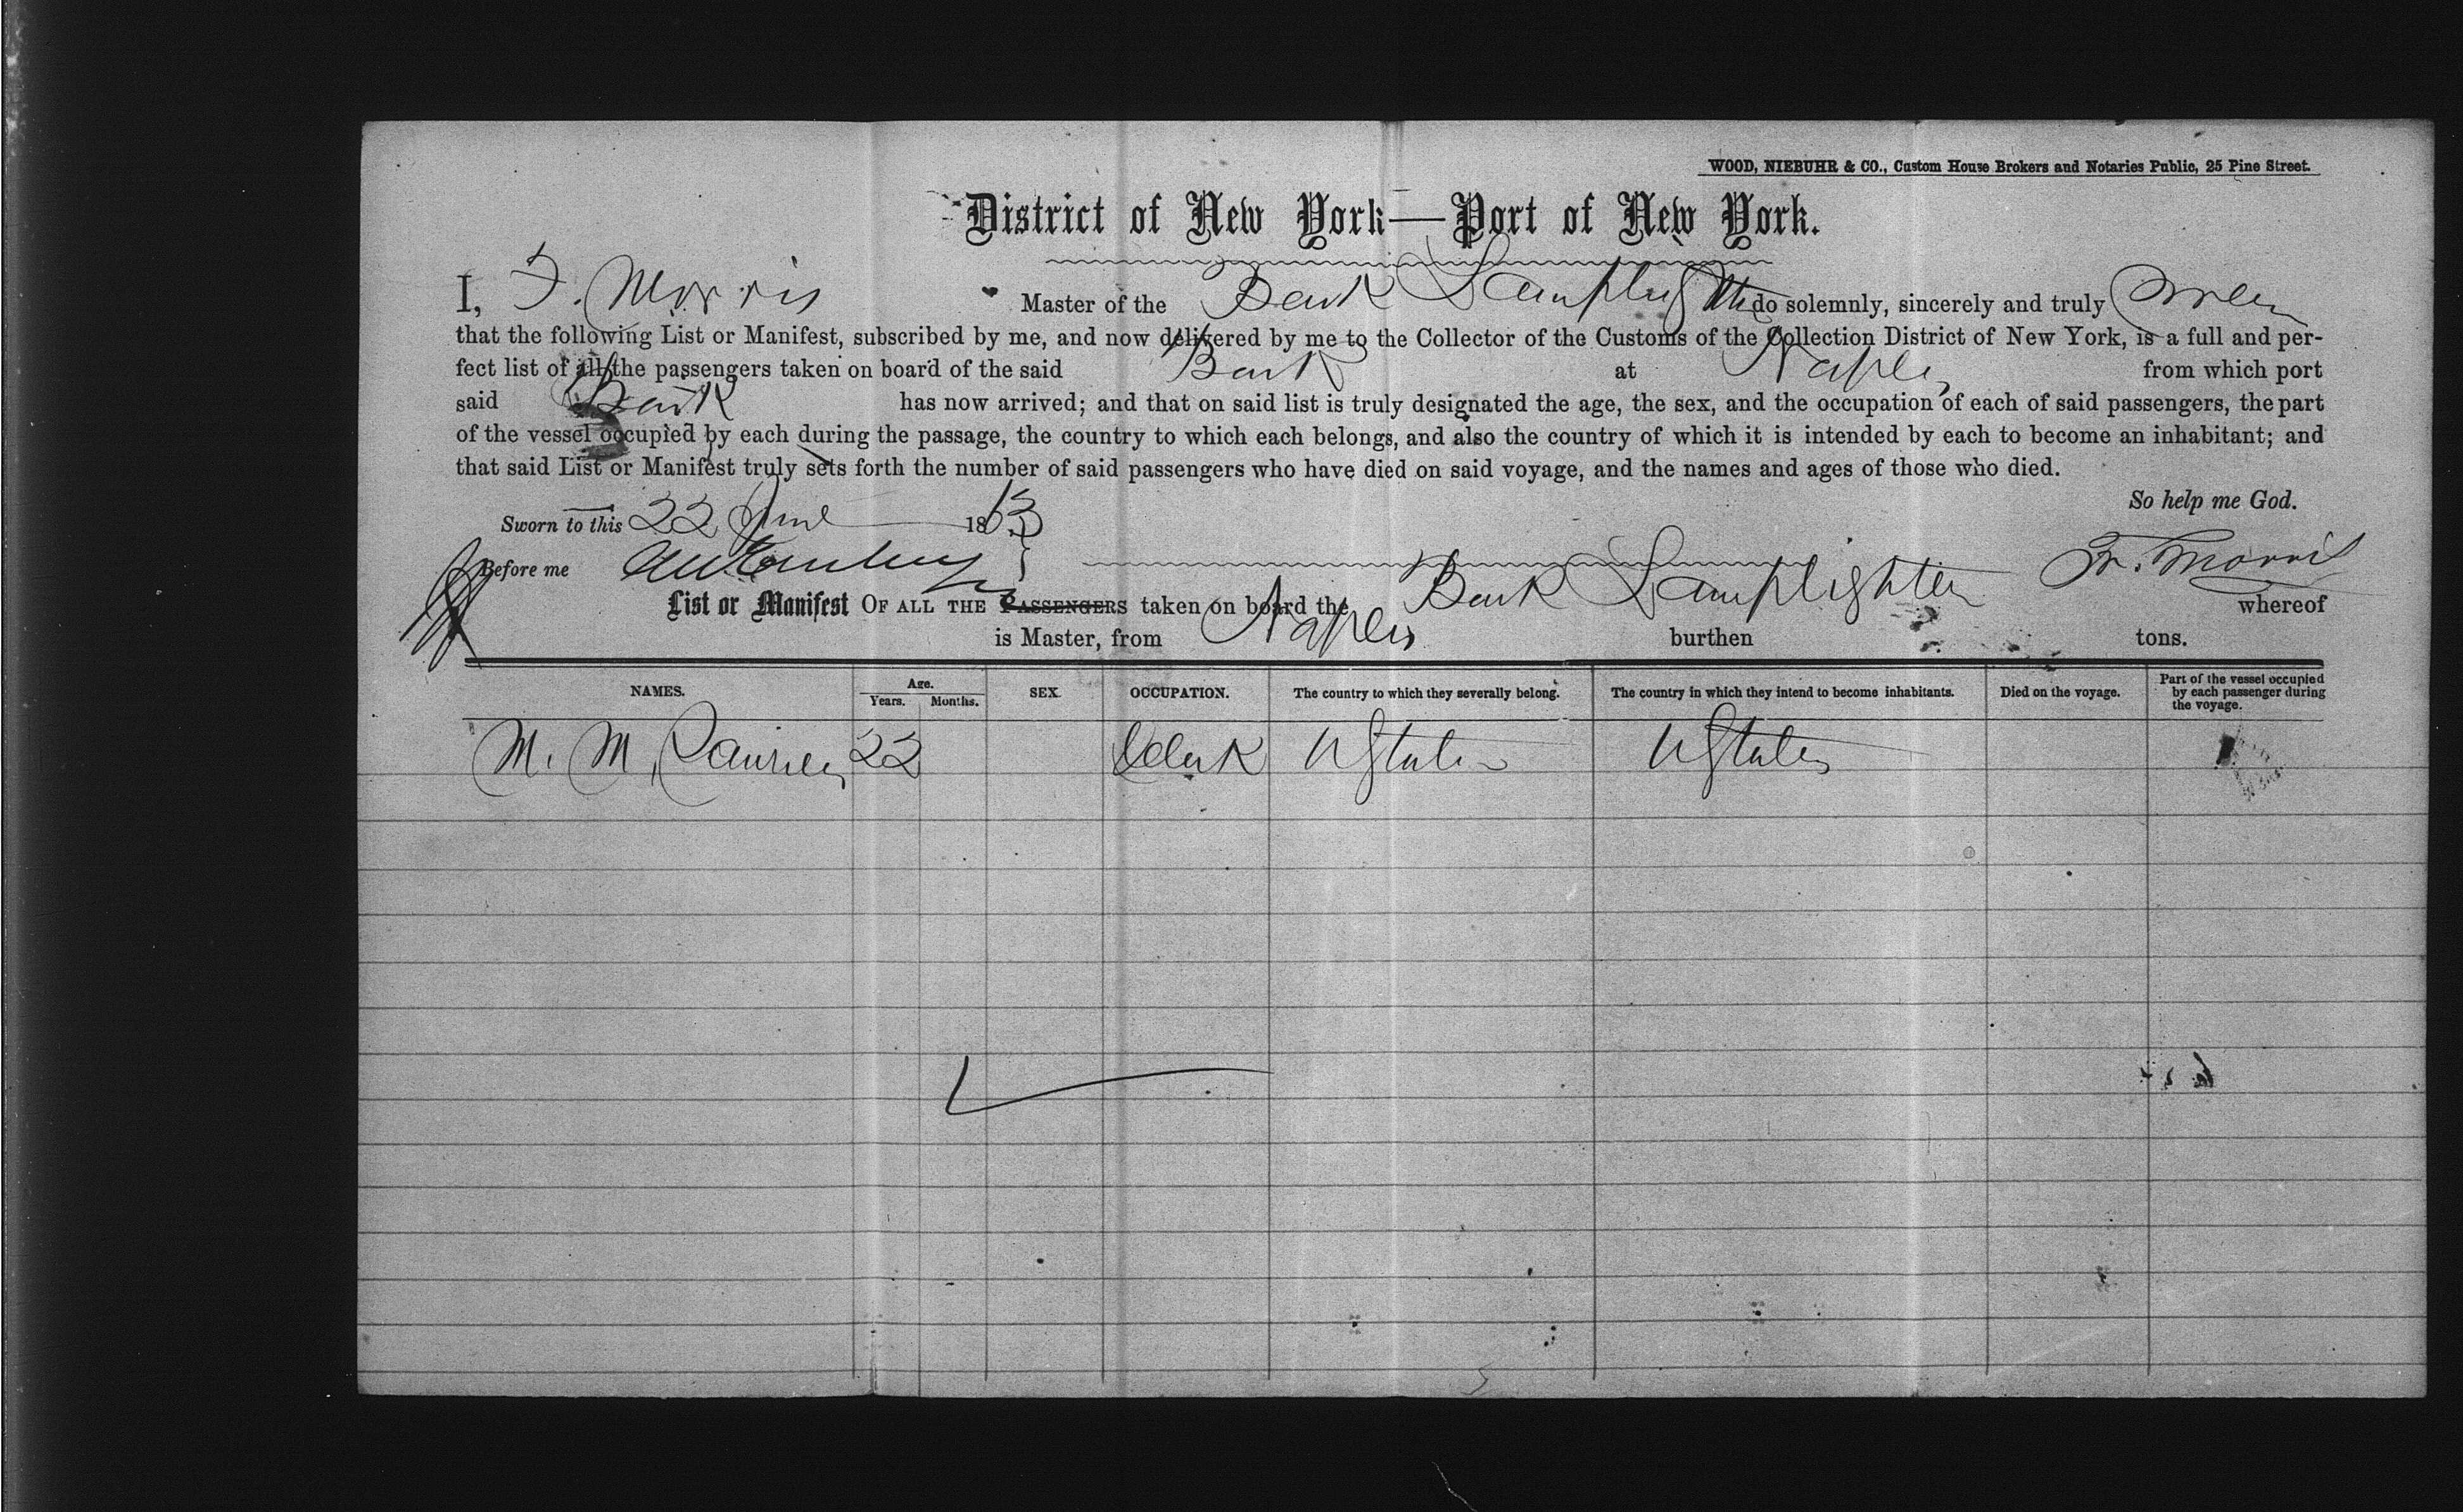 WOOD, NIEBUHR & CO., Custom House Brokers and Notaries Public, 25 Pine Street.
District of New York—Port of New York.
I, F. Morris Master of the Bark Lamplighter do solemnly, sincerely and truly swear
that the following List or Manifest, subscribed by me, and now delivered by me to the Collector of the Customs of the Collection District of New York, is a full and per-
fect list of all the passengers taken on board of the said Bark at Naples from which port
said Bark has now arrived; and that on said list is truly designated the age, the sex, and the occupation of each of said passengers, the part
of the vessel occupied by each during the passage, the country to which each belongs, and also the country of which it is intended by each to become an inhabitant; and
that said List or Manifest truly sets forth the number of said passengers who have died on said voyage, and the names and ages of those who died.
So help me God.
Sworn to this 22 June 1863
Before me
F. Morris
List or Manifest OF ALL THE PASSENGERS taken on board the Bark Lamplighter whereof
is Master, from Naples burthen tons.
NAMES. Age. Years. Months. SEX. OCCUPATION. The country to which they severally belong. The country in which they intend to become inhabitants. Died on the voyage. Part of the vessel occupied by each passenger during the voyage.
M. M. 22 Clerk UStates UStates